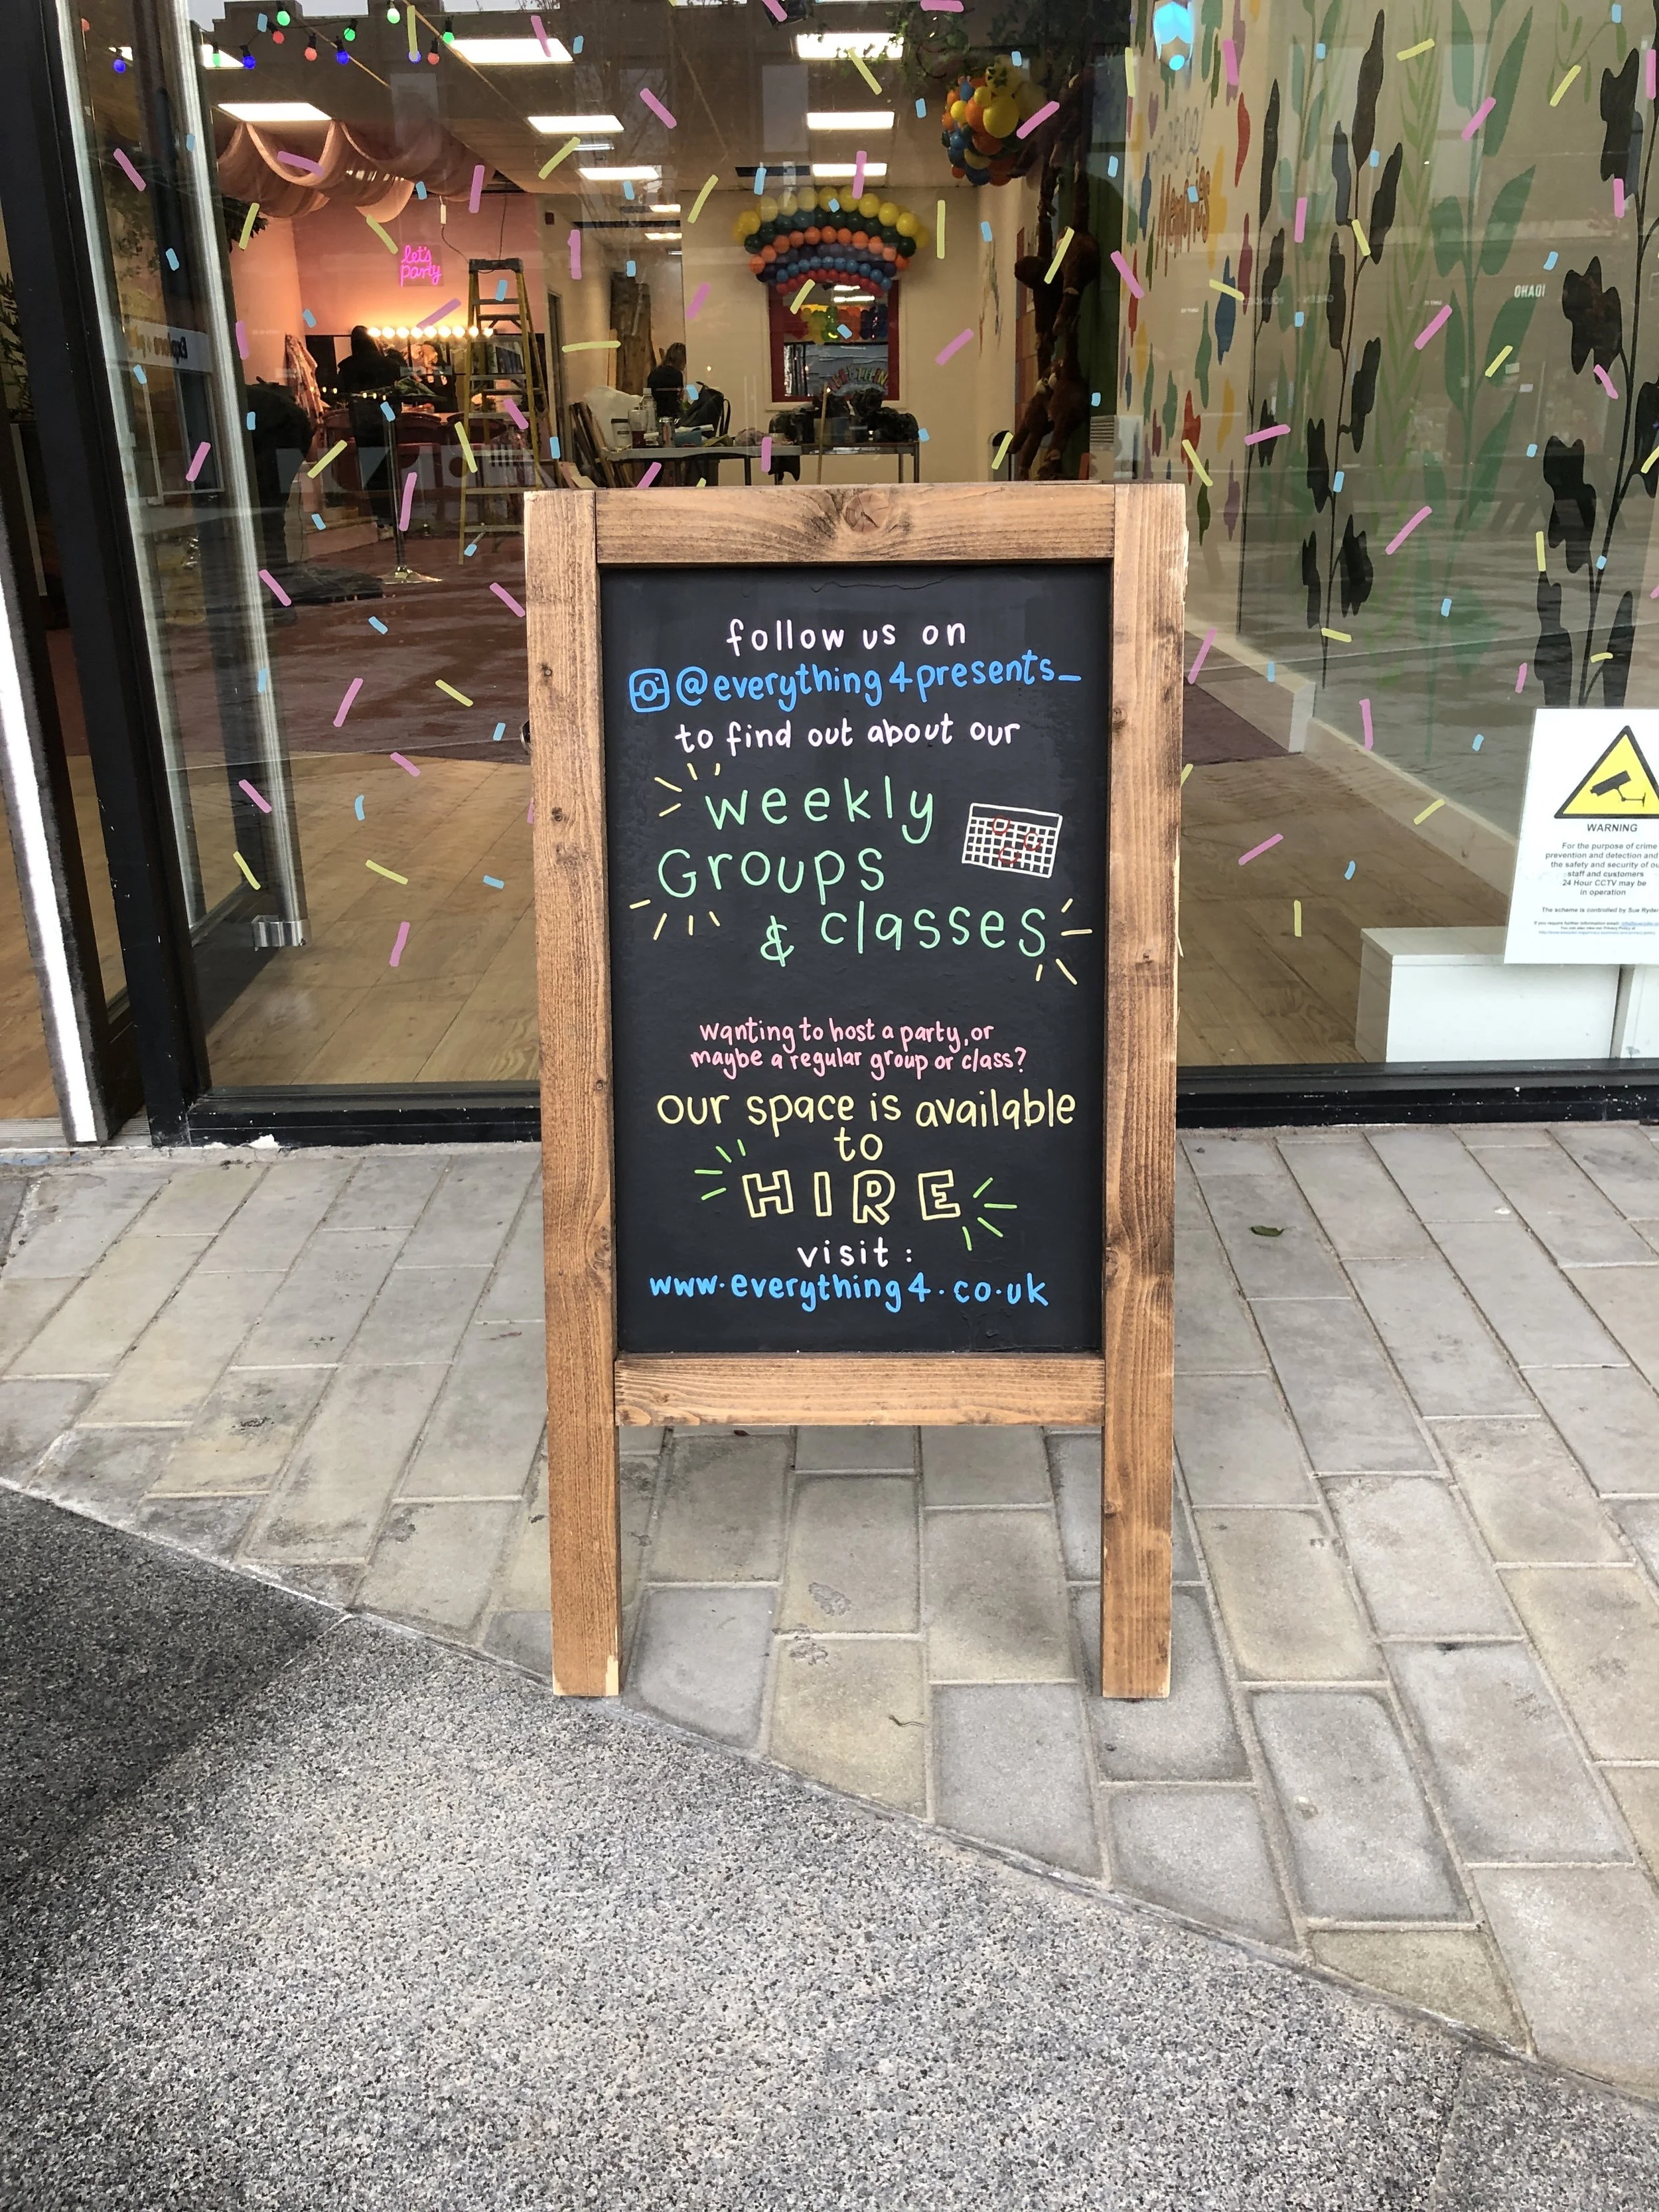 let's
party
follow us on
@everything4presents_
to find out about our
weekly
Groups
& classes
wanting to host a party, or
maybe a regular group or class?
our space is available
to
HIRE
visit:
www.everything4.co.uk
WARNING
For the purpose of crime
prevention and detection and
the safety and security of ou
staff and customers
24 Hour CCTV may be
in operation
The scheme is controlled by Sue Ryder